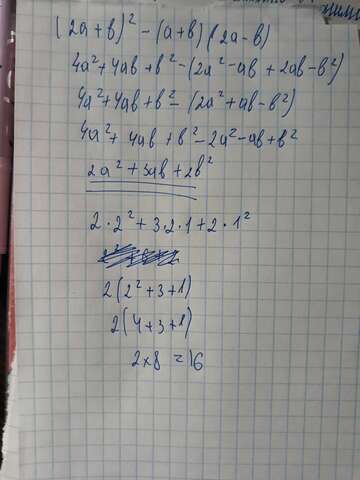 (2a+b)² - (a+b)(2a-b)
4a²+4ab+b²-(2a²-ab+2ab-b²)
4a²+4ab+b²-(2a²+ab-b²)
4a²+4ab+b²-2a²-ab+b²
2a²+3ab+2b²
2·2²+3·2·1+2·1²
2(2²+3+1)
2(4+3+1)
2×8=16